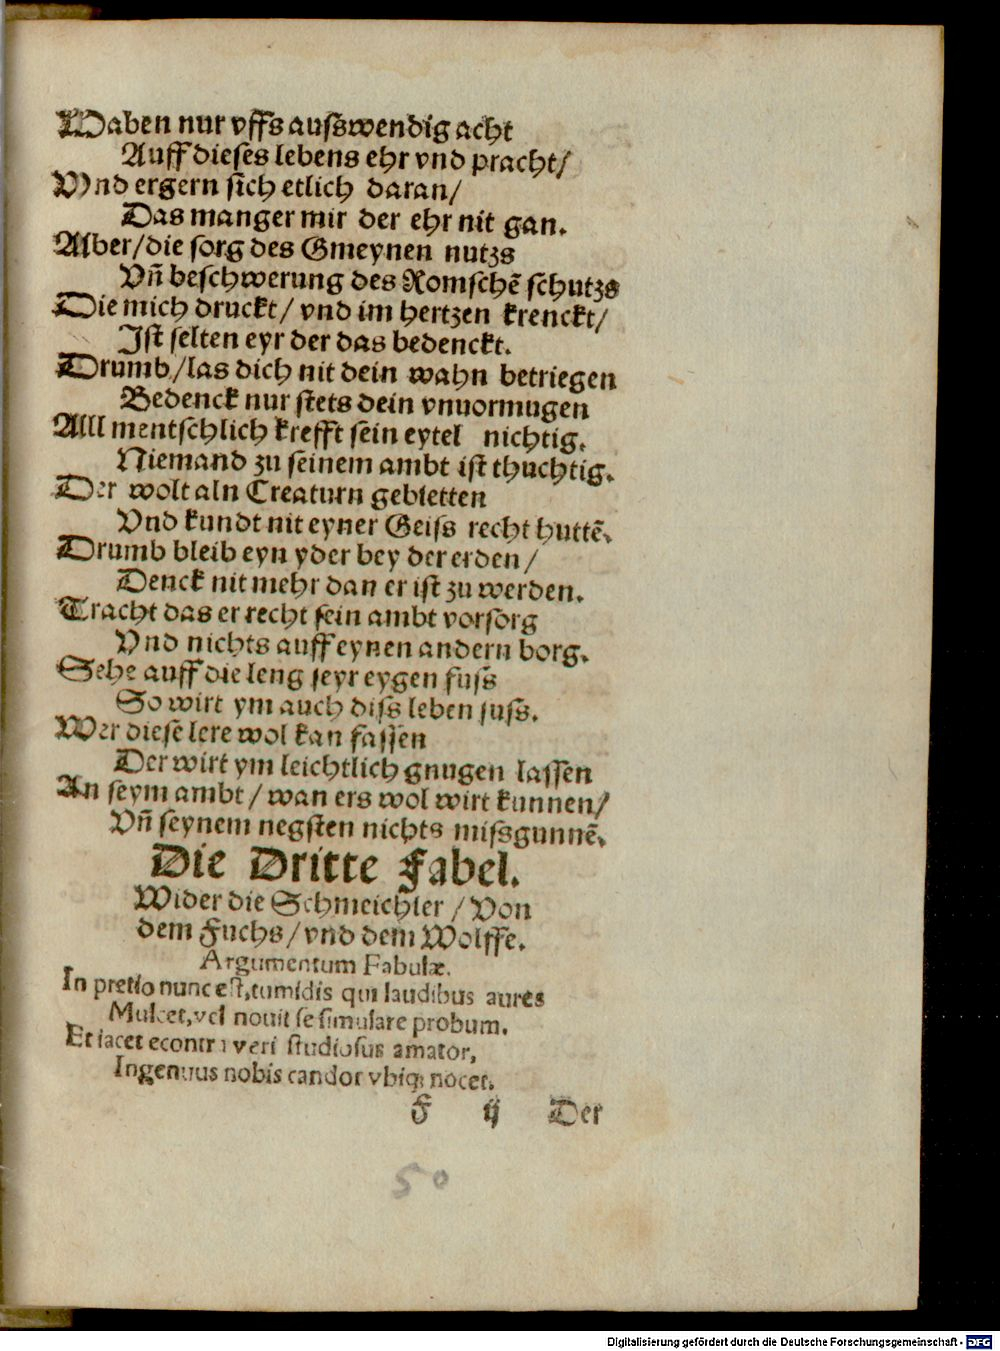 Haben nur vffs auſswendig acht
Auff dieses lebens ehr vnd pracht/
Vnd ergern sich etlich daran/
Das manger mir der ehr nit gan.
Alber/die sorg des Gmeynen nutzs
Vñ beschwerung des Romschẽ schutzs
Die mich druckt/ vnd im hertzen krenckt/
Ist selten eyr der das bedenckt.
Drumb/las dich nit dein wahn betriegen
Bedenck nur stets dein vnuormugen
Alll mentschlich krefft sein eytel nichtig.
Niemand zu seinem ambt ist thuchtig.
Der wolt aln Creaturn gebietten
Vnd kundt nit eyner Geiſs recht huttẽ.
Drumb bleib eyn yder bey der erden/
Denck nit mehr dan er ist zu werden.
Tracht das er recht sein ambt vorsorg
Vnd nichts auff eynen andern borg.
Sehe auff die leng seyr eygen fuſs
So wirt ym auch diſs leben suſs.
Wer diese lere wol kan fassen
Der wirt ym leichtlich gnugen lassen
An seym ambt/ wan ers wol wirt kunnen/
Vñ seynem negsten nichts miſsgunnẽ.
Die Dritte Fabel.
Wider die Schmeichler/ Von
dem Fuchs/ vnd dem Wolffe.
Argumentum Fabulæ.
In pretio nunc est, tumidis qui laudibus aures
Mulcet, vel novit se simulare probum.
Et iacet econtra veri studiosus amator,
Ingenuus nobis candor vbiq; nocet.
F ij Der
50
Digitalisierung gefördert durch die Deutsche Forschungsgemeinschaft - DFG